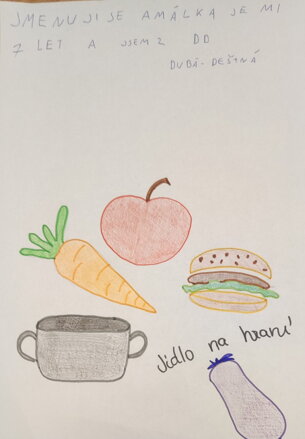 JMENUJI SE AMÁLKA JE MI
7 LET A JSEM Z DD
DUBÁ-DEŠTNÁ
Jídlo na hraní